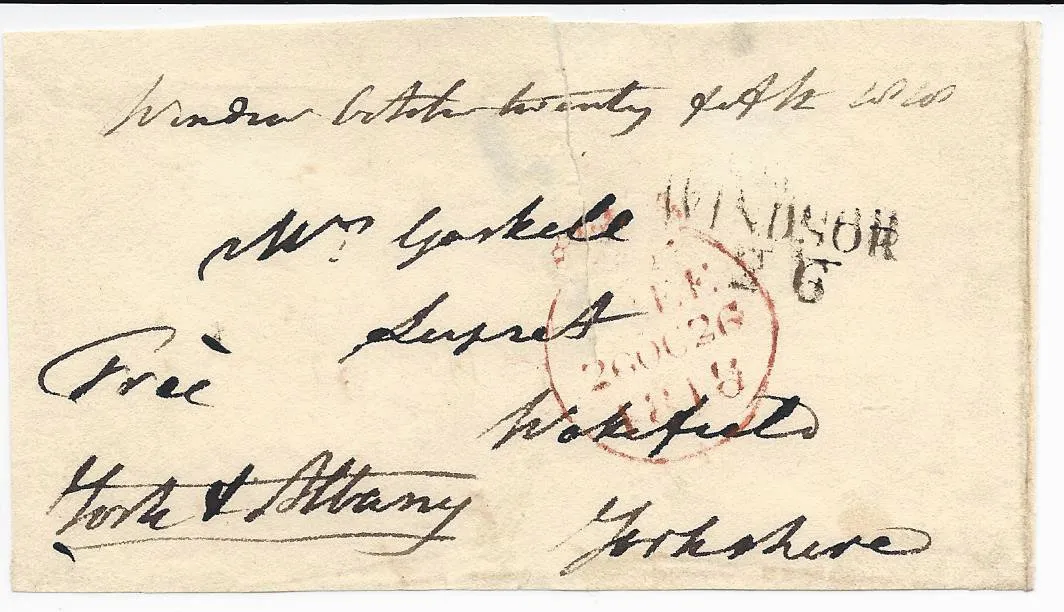 Windsor October twenty fifth 1818
Mrs Gaskell
Lupset
Wakefield
Yorkshire
Free
York & Albany
WINDSOR
FREE
26OC26
1818